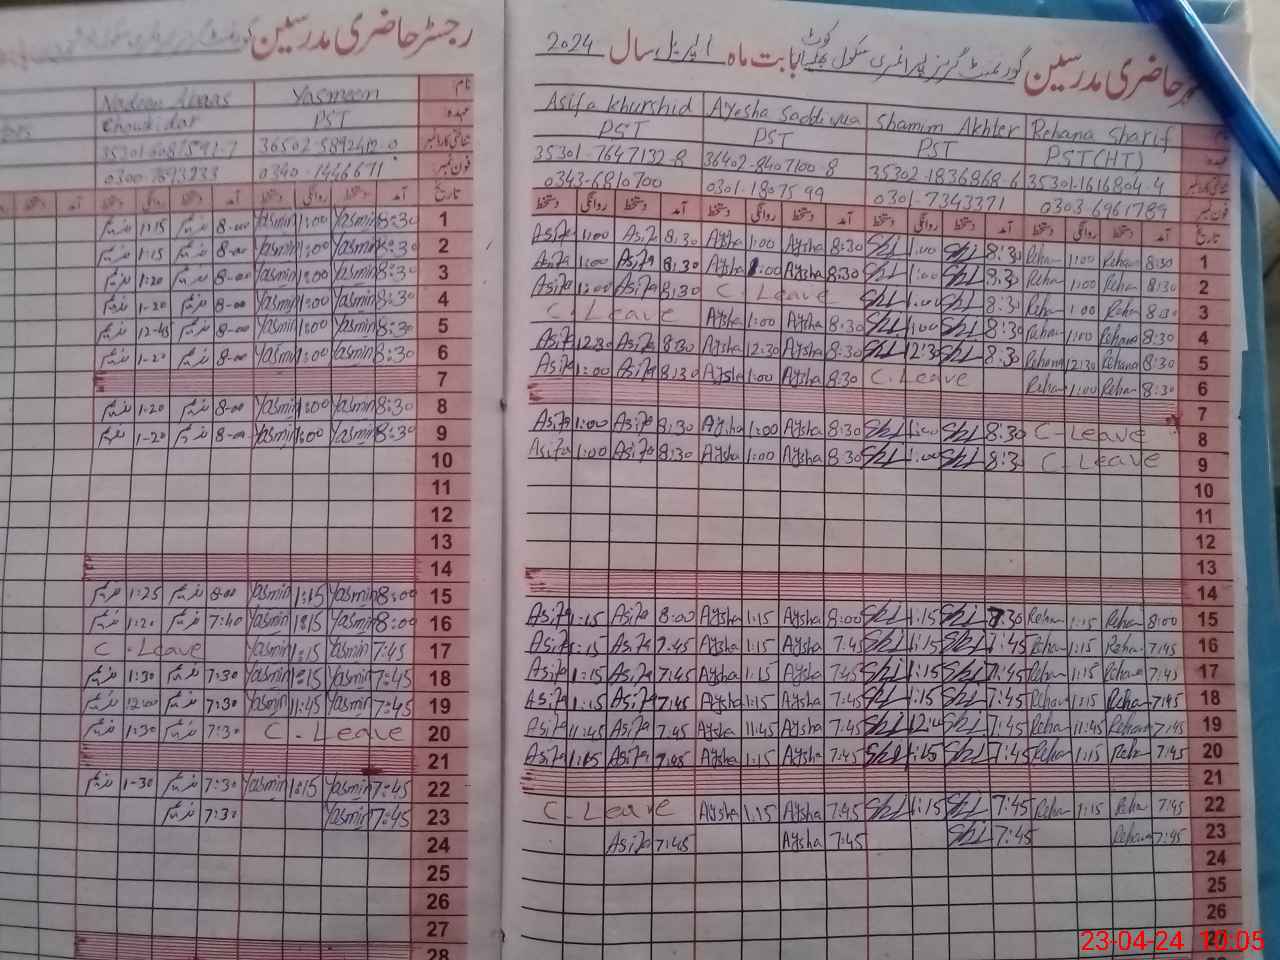 رجسٹر حاضری مدرسین
نام Yasmeen Nadeem Abbas
عہدہ PST Chowkidar
شناختی کارڈ نمبر
فون نمبر 0340-1446671 0300-7893233
تاریخ آمد دستخط روانگی دستخط آمد دستخط روانگی دستخط آمد دستخط
1 8:30 Yasmin 1:00 Yasmin 8-00 ندیم 1:15 ندیم
2 8:30 Yasmin 1:00 Yasmin 8-00 ندیم 1:15 ندیم
3 8:30 Yasmin 1:00 Yasmin 8-00 ندیم 1:20 ندیم
4 8:30 Yasmin 1:00 Yasmin 8-00 ندیم 1-20 ندیم
5 8:30 Yasmin 1:00 Yasmin 8-00 ندیم 12-45 ندیم
6 8:30 Yasmin 1:00 Yasmin 8-00 ندیم 1-20 ندیم
7
8 8:30 Yasmin 1:00 Yasmin 8-00 ندیم 1-20 ندیم
9 8:30 Yasmin 1:00 Yasmin 8-00 ندیم 1-20 ندیم
10
11
12
13
14
15 8:00 Yasmin 1:15 Yasmin 8-00 ندیم 1:25 ندیم
16 8:00 Yasmin 1:15 Yasmin 7:40 ندیم 1:20 ندیم
17 7:45 Yasmin 1:15 Yasmin C-Leave
18 7:45 Yasmin 1:15 Yasmin 7:30 ندیم 1:30 ندیم
19 7:45 Yasmin 11:45 Yasmin 7:30 ندیم 12:00 ندیم
20 C-Leave 7:30 ندیم 1:30 ندیم
21
22 7:45 Yasmin 1:15 Yasmin 7:30 ندیم 1-30 ندیم
23 7:45 Yasmin 7:30 ندیم
24
25
26
27
28
حاضری مدرسین گورنمنٹ گرلز پرائمری سکول کوٹ بابت ماہ اپریل سال 2024
Asifa Khurshid Ayesha Saddiqua Shamim Akhter Rehana Sharif
PST PST PST PST(HT)
35301-7647132-8 36402-8407100-8 35302-1836868-6 35301-1616804-4
0343-6810700 0301-1807599 0301-7343371 0303-6961789
دستخط روانگی دستخط آمد دستخط روانگی دستخط آمد دستخط روانگی دستخط آمد دستخط روانگی دستخط آمد تاریخ
Asifa 1:00 Asifa 8:30 Aysha 1:00 Aysha 8:30 1:00 8:30 Rehan 1:00 Rehan 8:30 1
Asifa 1:00 Asifa 8:30 Aysha 1:00 Aysha 8:30 1:00 8:30 Rehan 1:00 Rehan 8:30 2
Asifa 1:00 Asifa 8:30 C-Leave 1:00 8:30 Rehan 1:00 Rehan 8:30 3
C-Leave Aysha 1:00 Aysha 8:30 1:00 8:30 Rehan 1:00 Rehana 8:30 4
Asifa 12:30 Asifa 8:30 Aysha 12:30 Aysha 8:30 12:30 8:30 Rehana 12:30 Rehana 8:30 5
Asifa 1:00 Asifa 8:30 Aysha 1:00 Aysha 8:30 C.Leave Rehan 1:00 Rehan 8:30 6
7
Asifa 1:00 Asifa 8:30 Aysha 1:00 Aysha 8:30 1:00 8:30 C-Leave 8
Asifa 1:00 Asifa 8:30 Aysha 1:00 Aysha 8:30 1:00 8:3 C-Leave 9
10
11
12
13
14
Asifa 1:15 Asifa 8:00 Aysha 1:15 Aysha 8:00 1:15 7:30 Rehan 1:15 Rehan 8:00 15
Asifa 1:15 Asifa 7:45 Aysha 1:15 Aysha 7:45 1:15 7:45 Rehan 1:15 Rehan 7:45 16
Asifa 1:15 Asifa 7:45 Aysha 1:15 Aysha 7:45 1:15 7:45 Rehan 1:15 Rehana 7:45 17
Asifa 1:15 Asifa 7:45 Aysha 1:15 Aysha 7:45 1:15 7:45 Rehan 1:15 Rehan 7:45 18
Asifa 11:45 Asifa 7:45 Aysha 11:45 Aysha 7:45 7:45 Rehan 11:45 Rehana 7:45 19
Asifa 1:15 Asifa 7:45 Aysha 1:15 Aysha 7:45 7:45 Rehan 1:15 Reha 7:45 20
21
C-Leave Aysha 1:15 Aysha 7:45 1:15 7:45 Rehan 1:15 Reha 7:45 22
Asifa 7:45 Aysha 7:45 7:45 Rehana 7:45 23
24
25
26
27
23-04-24 10:05